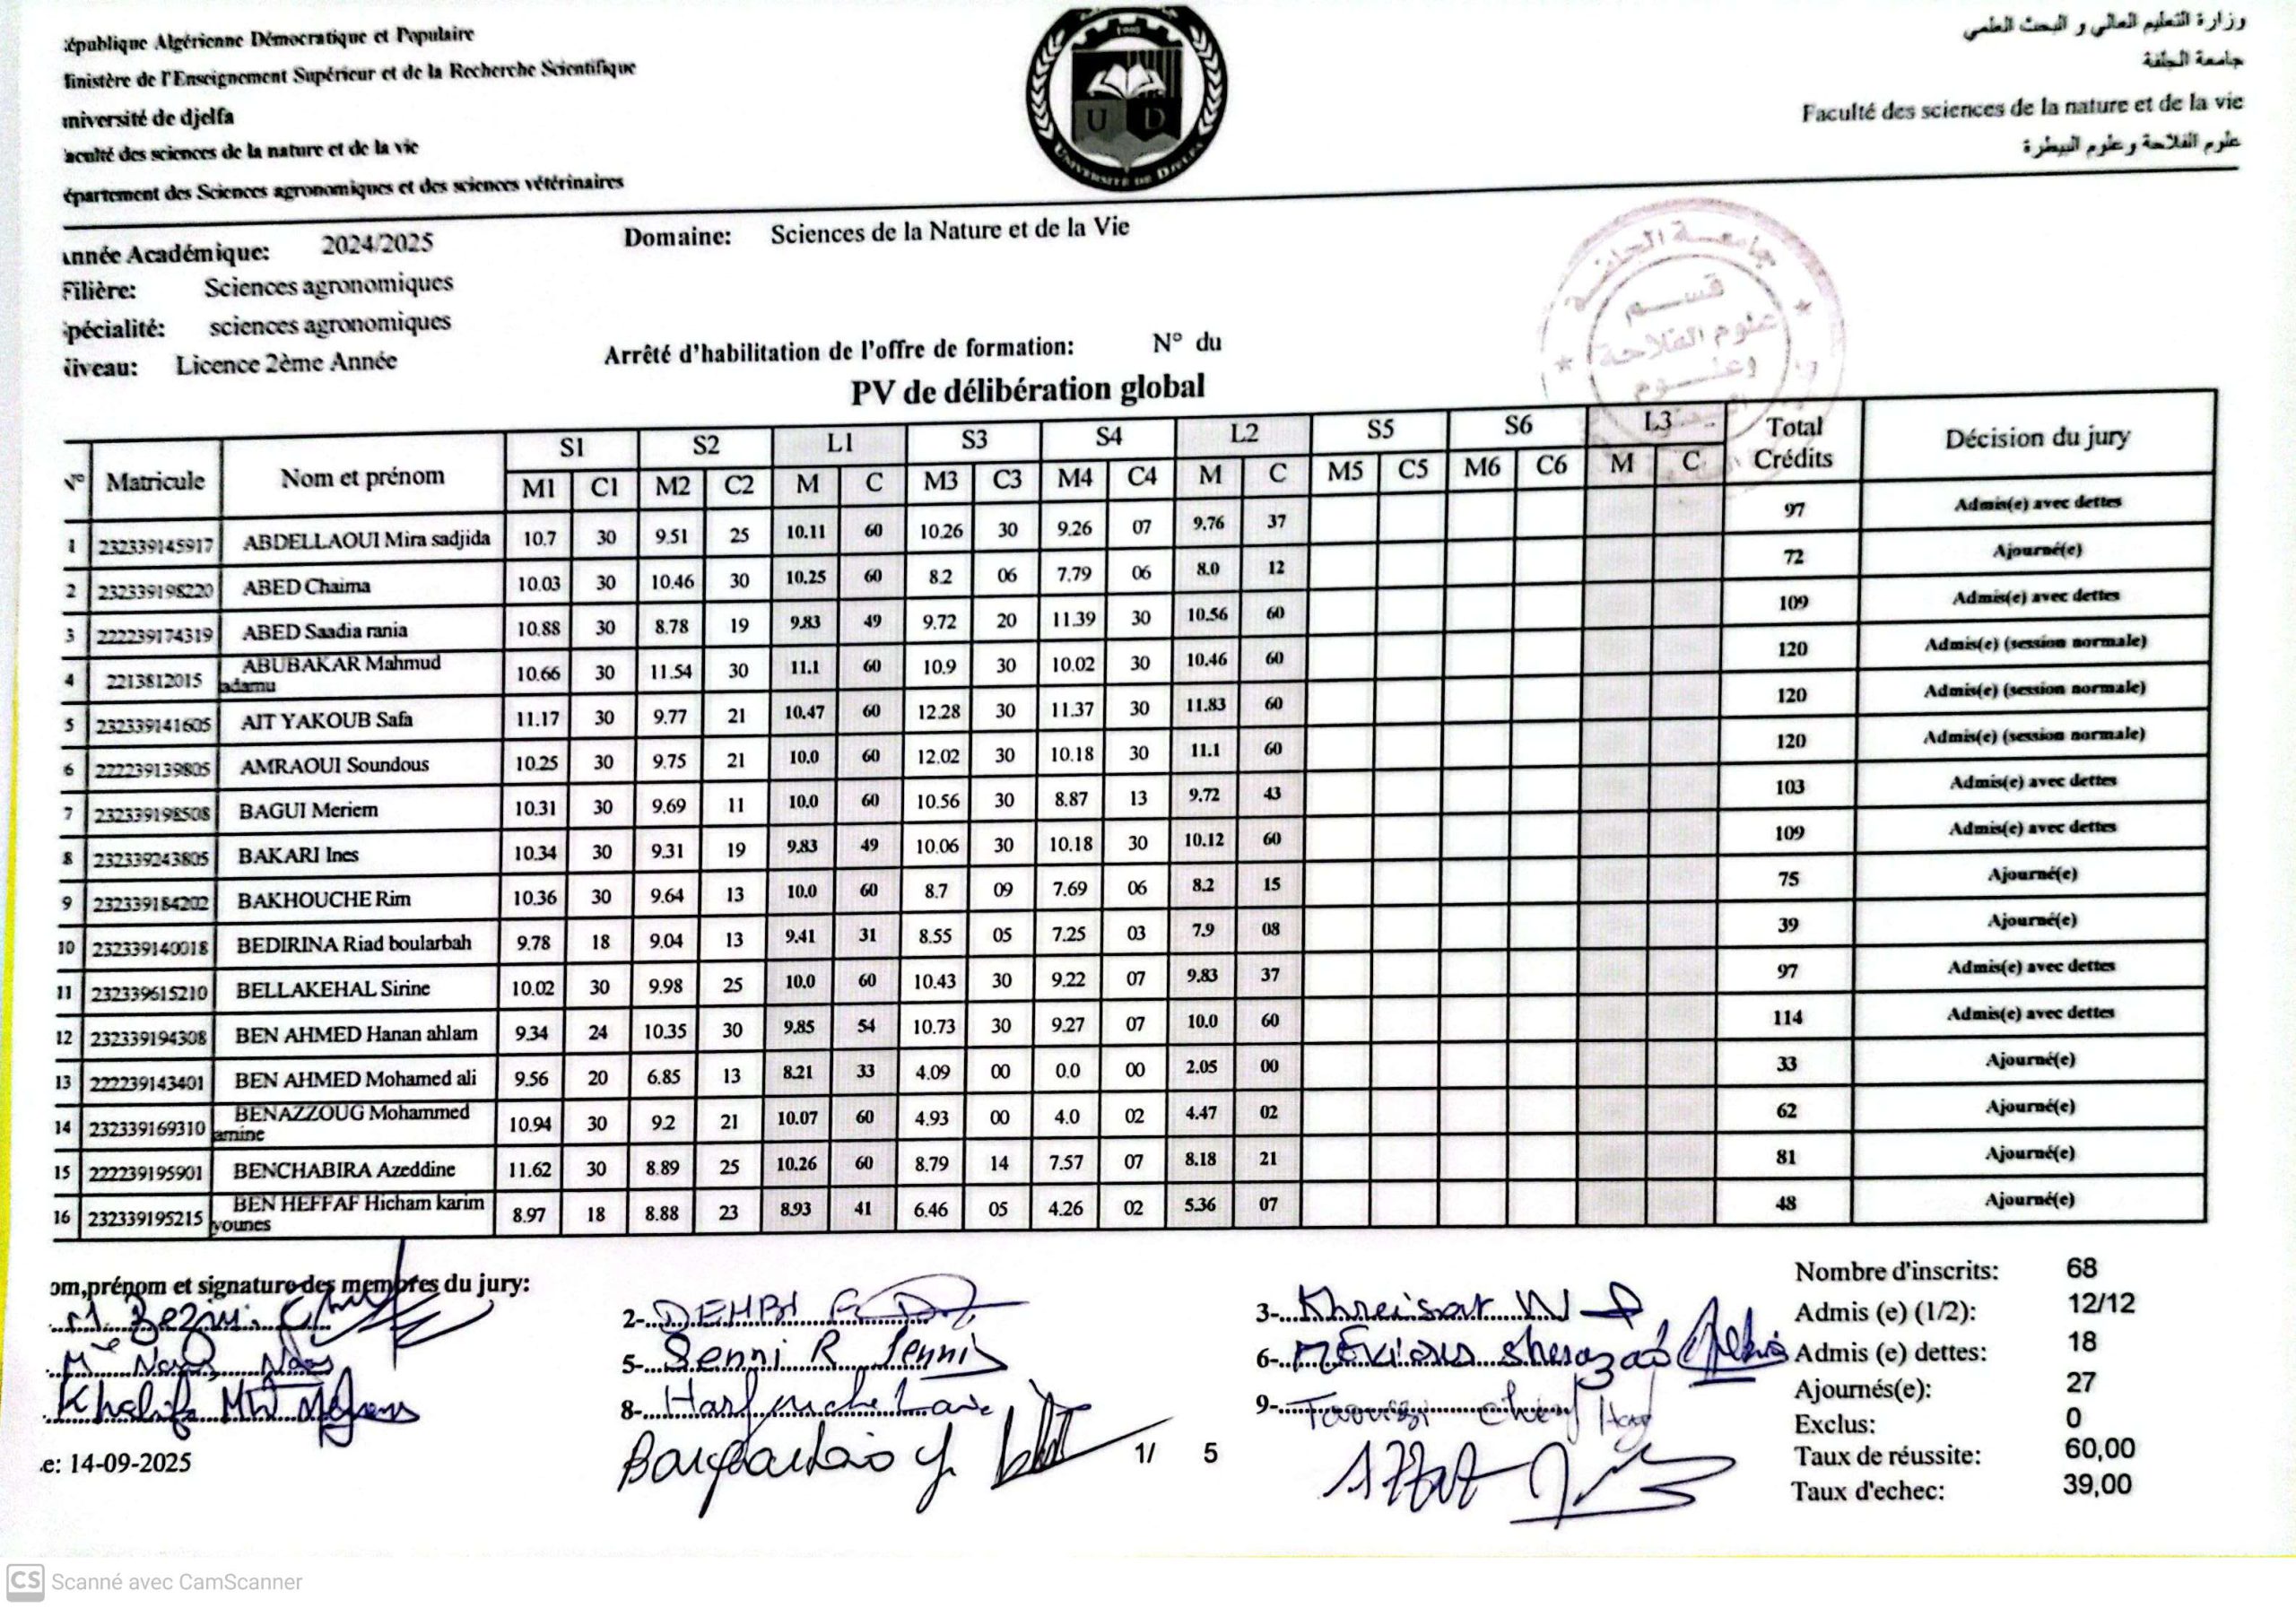 épublique Algérienne Démocratique et Populaire
finistère de l'Enseignement Supérieur et de la Recherche Scientifique
université de djelfa
aculté des sciences de la nature et de la vie
épartement des Sciences agronomiques et des sciences vétérinaires
UNIVERSITÉ DE DJELFA
U D
وزارة التعليم العالي و البحث العلمي
جامعة الجلفة
Faculté des sciences de la nature et de la vie
علوم الفلاحة وعلوم البيطرة
nnée Académique: 2024/2025 Domaine: Sciences de la Nature et de la Vie
Filière: Sciences agronomiques
pécialité: sciences agronomiques
iveau: Licence 2ème Année Arrêté d'habilitation de l'offre de formation: N° du
قسم
علوم الفلاحة
وعلوم
PV de délibération global
N° Matricule Nom et prénom S1 S2 L1 S3 S4 L2 S5 S6 L3 Total Crédits Décision du jury
M1 C1 M2 C2 M C M3 C3 M4 C4 M C M5 C5 M6 C6 M C
1 232339145917 ABDELLAOUI Mira sadjida 10.7 30 9.51 25 10.11 60 10.26 30 9.26 07 9.76 37 97 Admis(e) avec dettes
2 232339198220 ABED Chaima 10.03 30 10.46 30 10.25 60 8.2 06 7.79 06 8.0 12 72 Ajourné(e)
3 222239174319 ABED Saadia rania 10.88 30 8.78 19 9.83 49 9.72 20 11.39 30 10.56 60 109 Admis(e) avec dettes
4 2213812015 ABUBAKAR Mahmud adamu 10.66 30 11.54 30 11.1 60 10.9 30 10.02 30 10.46 60 120 Admis(e) (session normale)
5 232339141605 AIT YAKOUB Safa 11.17 30 9.77 21 10.47 60 12.28 30 11.37 30 11.83 60 120 Admis(e) (session normale)
6 222239139805 AMRAOUI Soundous 10.25 30 9.75 21 10.0 60 12.02 30 10.18 30 11.1 60 120 Admis(e) (session normale)
7 232339198508 BAGUI Meriem 10.31 30 9.69 11 10.0 60 10.56 30 8.87 13 9.72 43 103 Admis(e) avec dettes
8 232339243805 BAKARI Ines 10.34 30 9.31 19 9.83 49 10.06 30 10.18 30 10.12 60 109 Admis(e) avec dettes
9 232339184202 BAKHOUCHE Rim 10.36 30 9.64 13 10.0 60 8.7 09 7.69 06 8.2 15 75 Ajourné(e)
10 232339140018 BEDIRINA Riad boularbah 9.78 18 9.04 13 9.41 31 8.55 05 7.25 03 7.9 08 39 Ajourné(e)
11 232339615210 BELLAKEHAL Sirine 10.02 30 9.98 25 10.0 60 10.43 30 9.22 07 9.83 37 97 Admis(e) avec dettes
12 232339194308 BEN AHMED Hanan ahlam 9.34 24 10.35 30 9.85 54 10.73 30 9.27 07 10.0 60 114 Admis(e) avec dettes
13 222239143401 BEN AHMED Mohamed ali 9.56 20 6.85 13 8.21 33 4.09 00 0.0 00 2.05 00 33 Ajourné(e)
14 232339169310 BENAZZOUG Mohammed amine 10.94 30 9.2 21 10.07 60 4.93 00 4.0 02 4.47 02 62 Ajourné(e)
15 222239195901 BENCHABIRA Azeddine 11.62 30 8.89 25 10.26 60 8.79 14 7.57 07 8.18 21 81 Ajourné(e)
16 232339195215 BEN HEFFAF Hicham karim younes 8.97 18 8.88 23 8.93 41 6.46 05 4.26 02 5.36 07 48 Ajourné(e)
om,prénom et signature des membres du jury:
2- DEHBI
3- Khreisat
5- Senni R
6-
Khalifa
8-
9- Taoussi
e: 14-09-2025
1/ 5
Nombre d'inscrits: 68
Admis (e) (1/2): 12/12
Admis (e) dettes: 18
Ajournés(e): 27
Exclus: 0
Taux de réussite: 60,00
Taux d'echec: 39,00
CS Scanné avec CamScanner